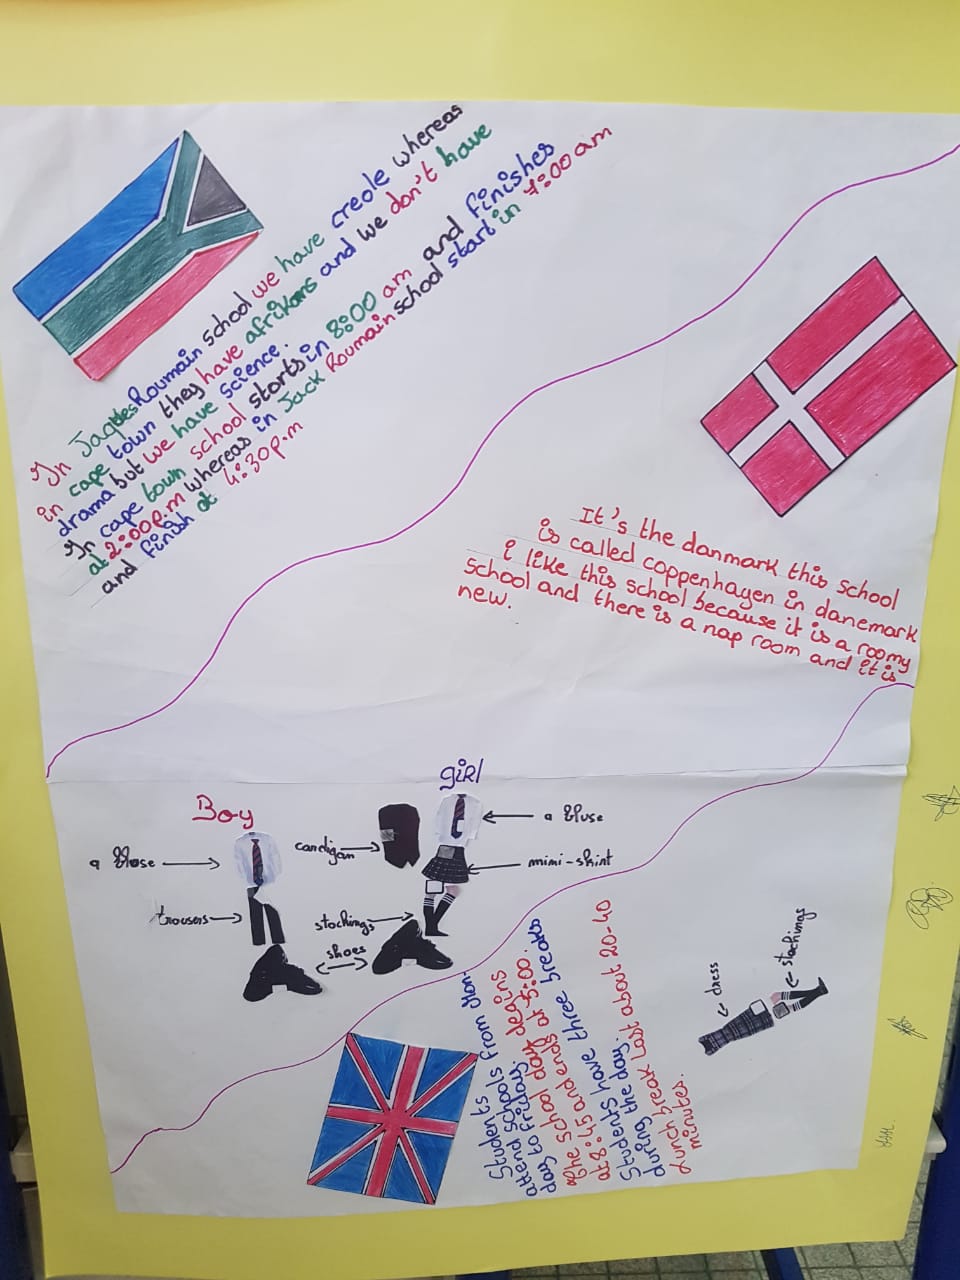 In JaquesRoumain school we have creole whereas
in cape town they have afrikans and we don't have
drama but we have science.
In cape town school starts in 8:00 am and finishes
at 2:00p.m whereas in Jack Roumain school start in 7:00 am
and finish at 4:30p.m
It's the danmark this school
is called coppenhagen in danemark
i like this school because it is a roomy
school and there is a nap room and it is
new.
Boy
girl
a blose
trousers
candigan
stochings
shoes
a bluse
mimi-skint
dress
stochings
Students from Mon-
attend schools
day to friday.
The school day begins
at 8:45 and ends at 3:00.
Students have three breaks
during the day.
Lunch break last about 20-40
minutes.